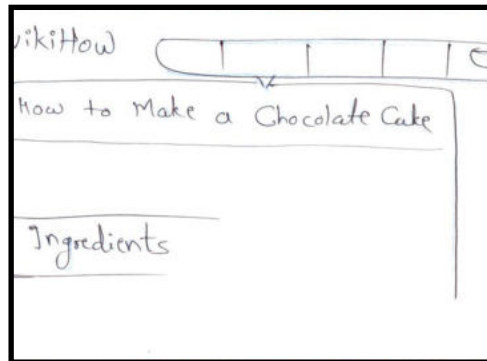 vikiHow
How to Make a Chocolate Cake
Ingredients